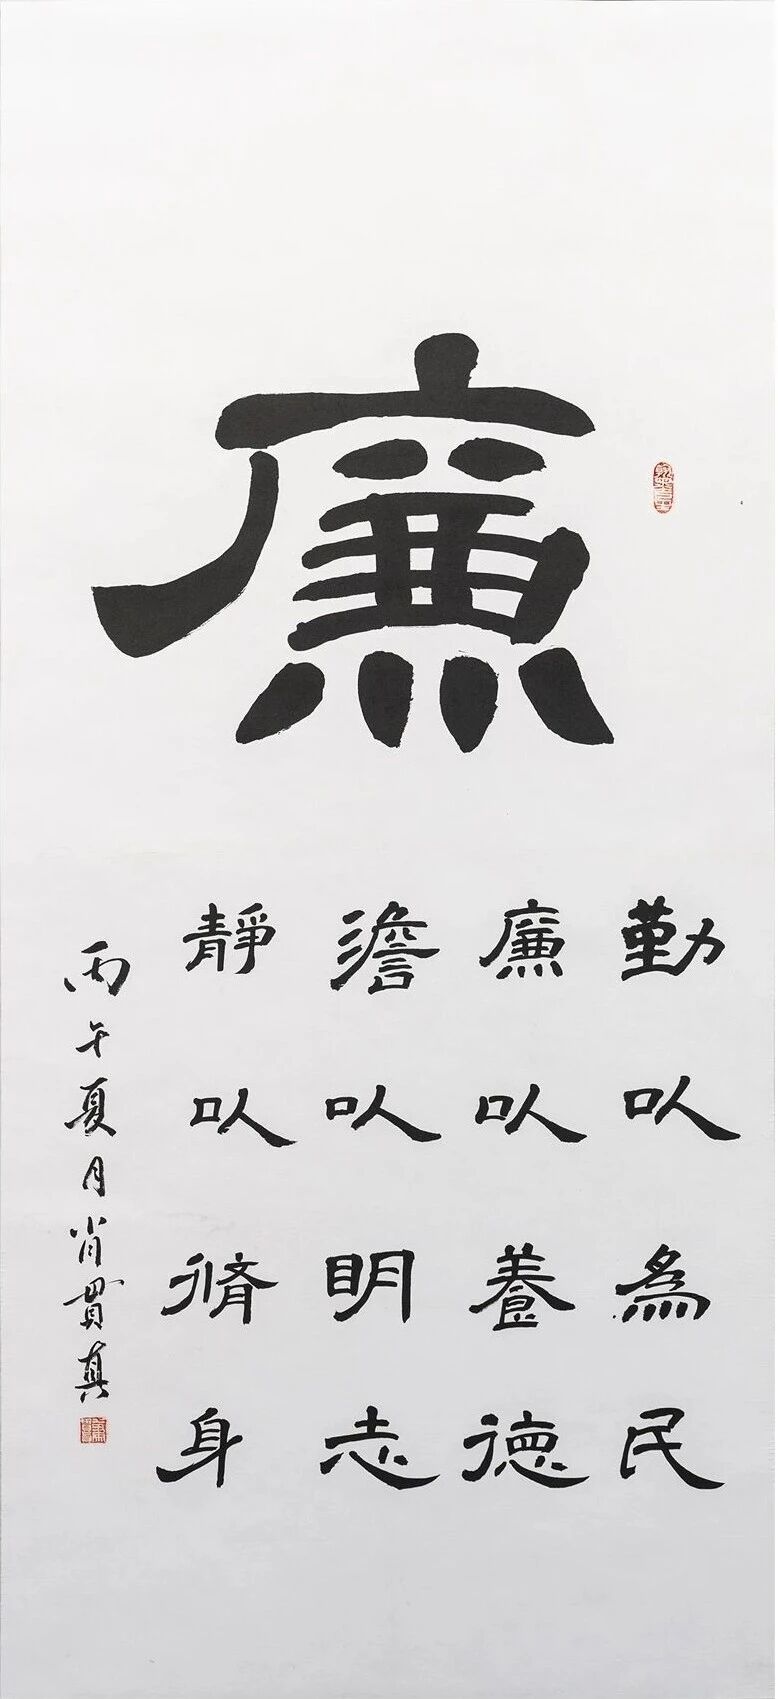 廉
勤以為民
廉以養德
澹以明志
靜以脩身
丙午夏月肖贯真